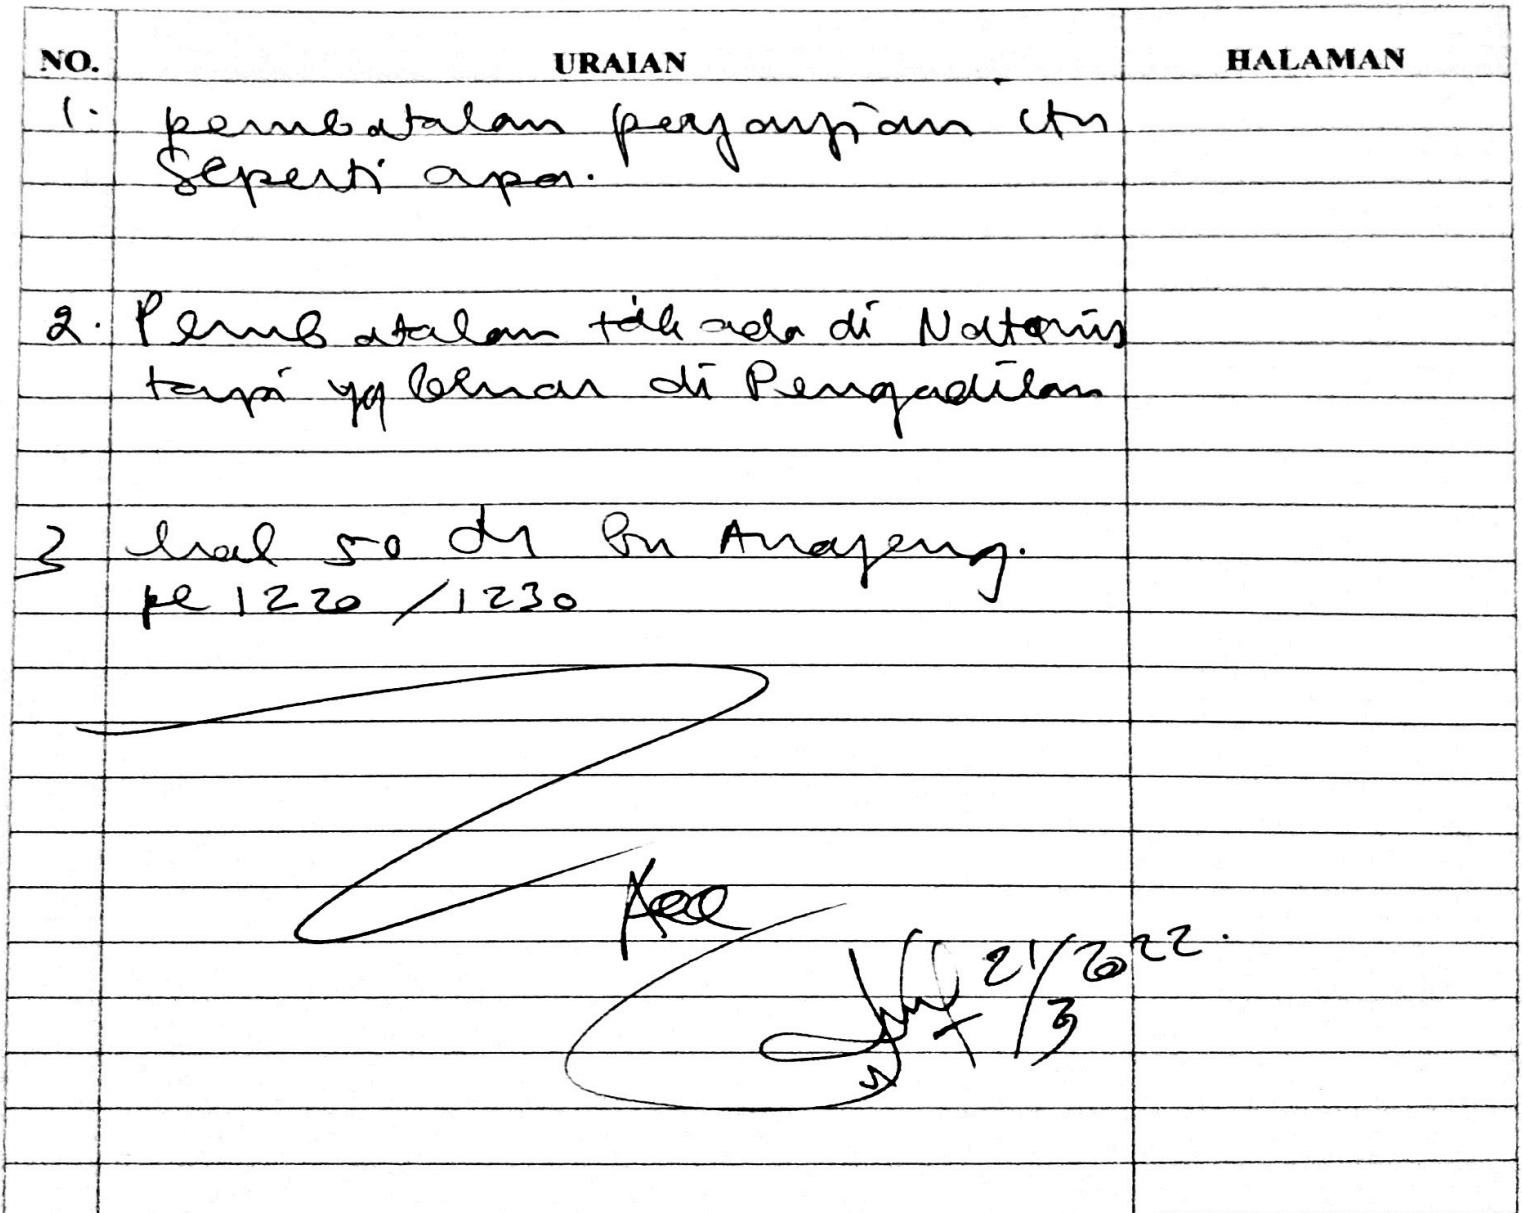 NO. URAIAN HALAMAN
1. pembatalan perjanjian itu
seperti apa.
2. Pembatalan tdk ada di Notaris
tapi yg benar di Pengadilan
3 hal 50 di bu Anajeng.
1220 / 1230
Acc
21/3 2022.